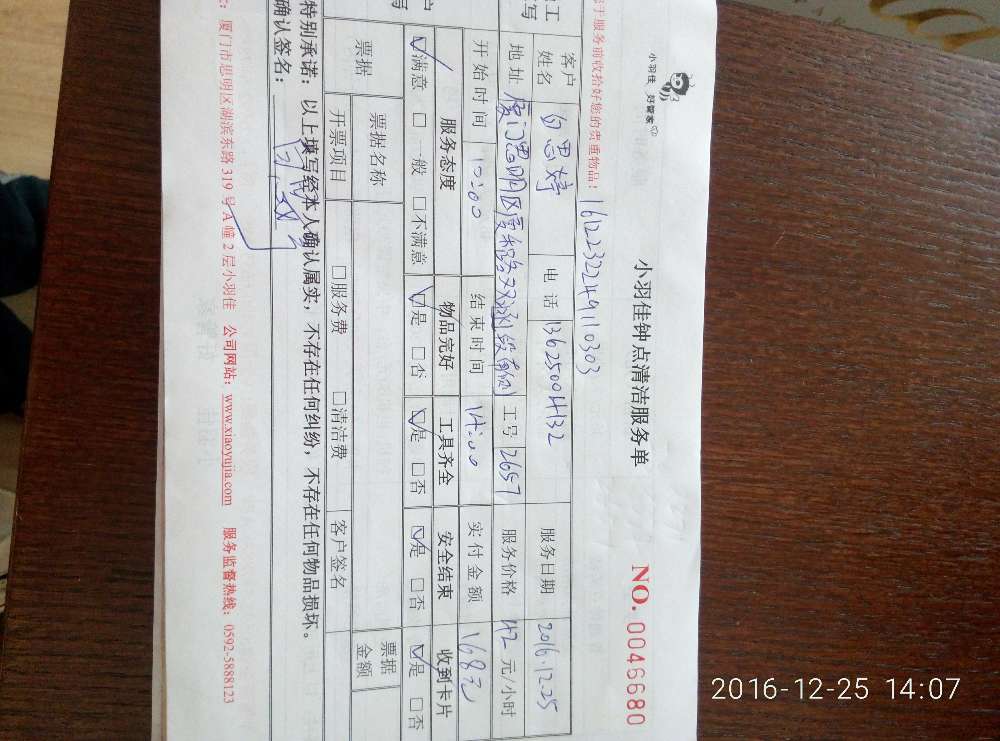 小羽佳 好管家
小羽佳钟点清洁服务单
NO. 0046680
于服务前收拾好您的贵重物品！ 1612232249110303
客户姓名 电话 13625004132 服务日期 2016.12.25
地址 厦门思明区 工号 2657 服务价格 42 元/小时
开始时间 10:00 结束时间 14:00 实付金额 168元
服务态度 物品完好 工具齐全 安全结束 收到卡片
☑满意 □一般 □不满意 ☑是 □否 ☑是 □否 ☑是 □否 ☑是 □否
票据 票据名称 票据金额
开票项目 □服务费 □清洁费 客户签名
特别承诺：以上填写经本人确认属实，不存在任何纠纷，不存在任何物品损坏。
确认签名：
厦门市思明区湖滨东路319号A幢2层小羽佳 公司网站：www.xiaoyujia.com 服务监督热线：0592-5888123
2016-12-25 14:07